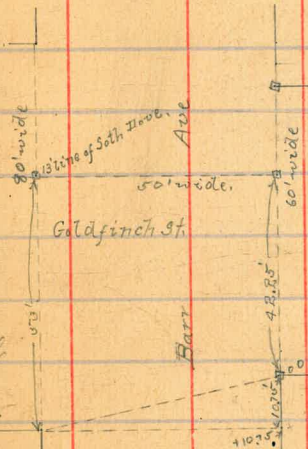 80' wide
13' line of Soth Hove.
Ave
60' wide
50' wide.
Goldfinch St.
50'
Barr
42.25'
10.75'
+10.75